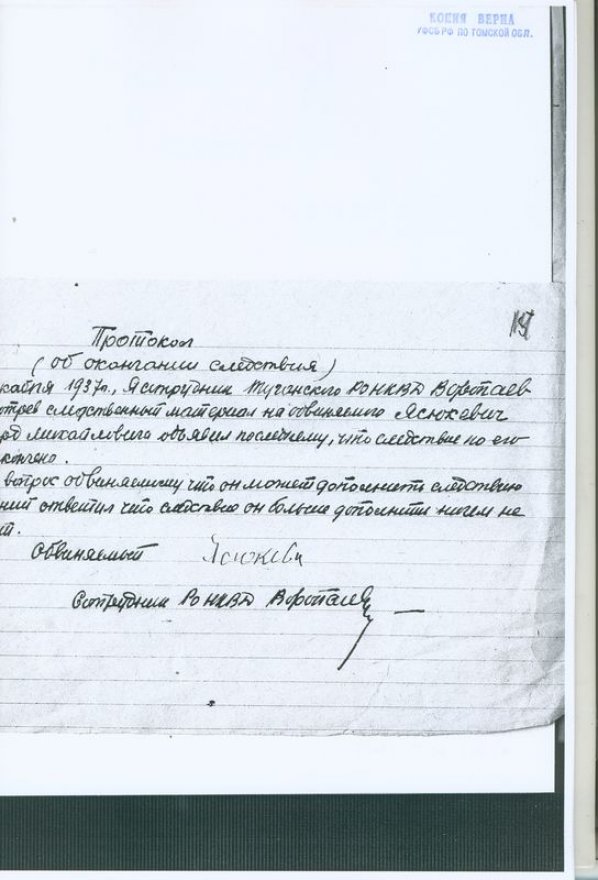 КОПИЯ ВЕРНА
УФСБ РФ ПО ТОМСКОЙ ОБЛ.
19
Протокол
(об окончании следствия)
кабря 1937г., Я сотрудник Туганского РО НКВД Воротаев
отрев следственный материал на обвиняемого Ясюкевич
рд Михайловича объявил последнему, что следствие по его
кончено.
вопрос обвиняемому что он может дополнить следствию
ний ответил что следствию он больше дополнить ничем не
ет.
Обвиняемый Ясюкеви
Сотрудник РО НКВД Воротаев